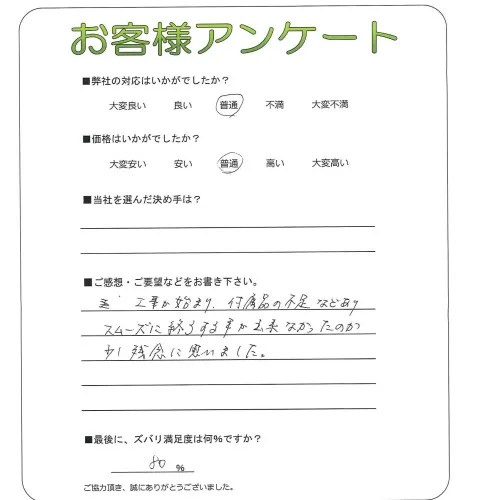 お客様アンケート
■弊社の対応はいかがでしたか？
大変良い 良い 普通 不満 大変不満
■価格はいかがでしたか？
大変安い 安い 普通 高い 大変高い
■当社を選んだ決め手は？
■ご感想・ご要望などをお書き下さい。
工事が始まり、付属品の不足などあり
スムーズに終了する事が出来なかったのが
少し残念に思いました。
■最後に、ズバリ満足度は何％ですか？
80 %
ご協力頂き、誠にありがとうございました。